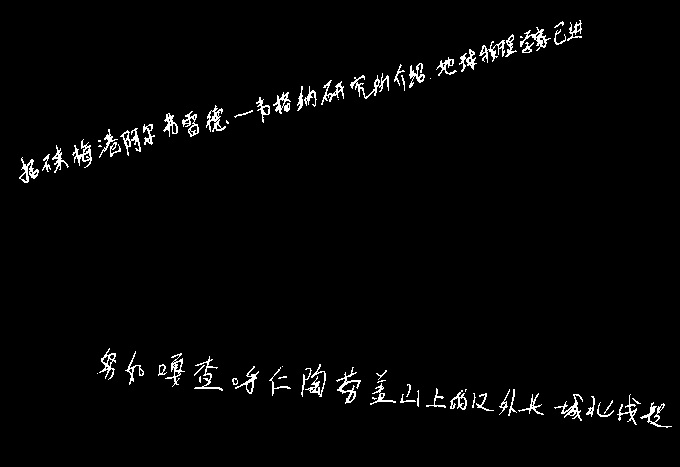 据不来梅港阿尔弗雷德·一韦格纳研究所介绍.地球物理学家已进
努如嘎查呼仁陶劳盖山上的汉外长城北线起